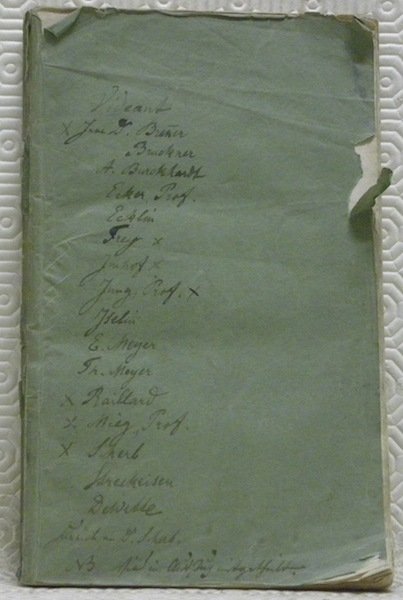 Videant
x Jung D. Brenner
Bruckner
A. Burckhardt
Ecker, Prof.
Ecklin
Frey x
Imhof x
Jung, Prof. x
Iselin
E. Meyer
Th. Meyer
x Raillard
x. Mieg, Prof.
x Scherb
Streckeisen
DeWette
NB